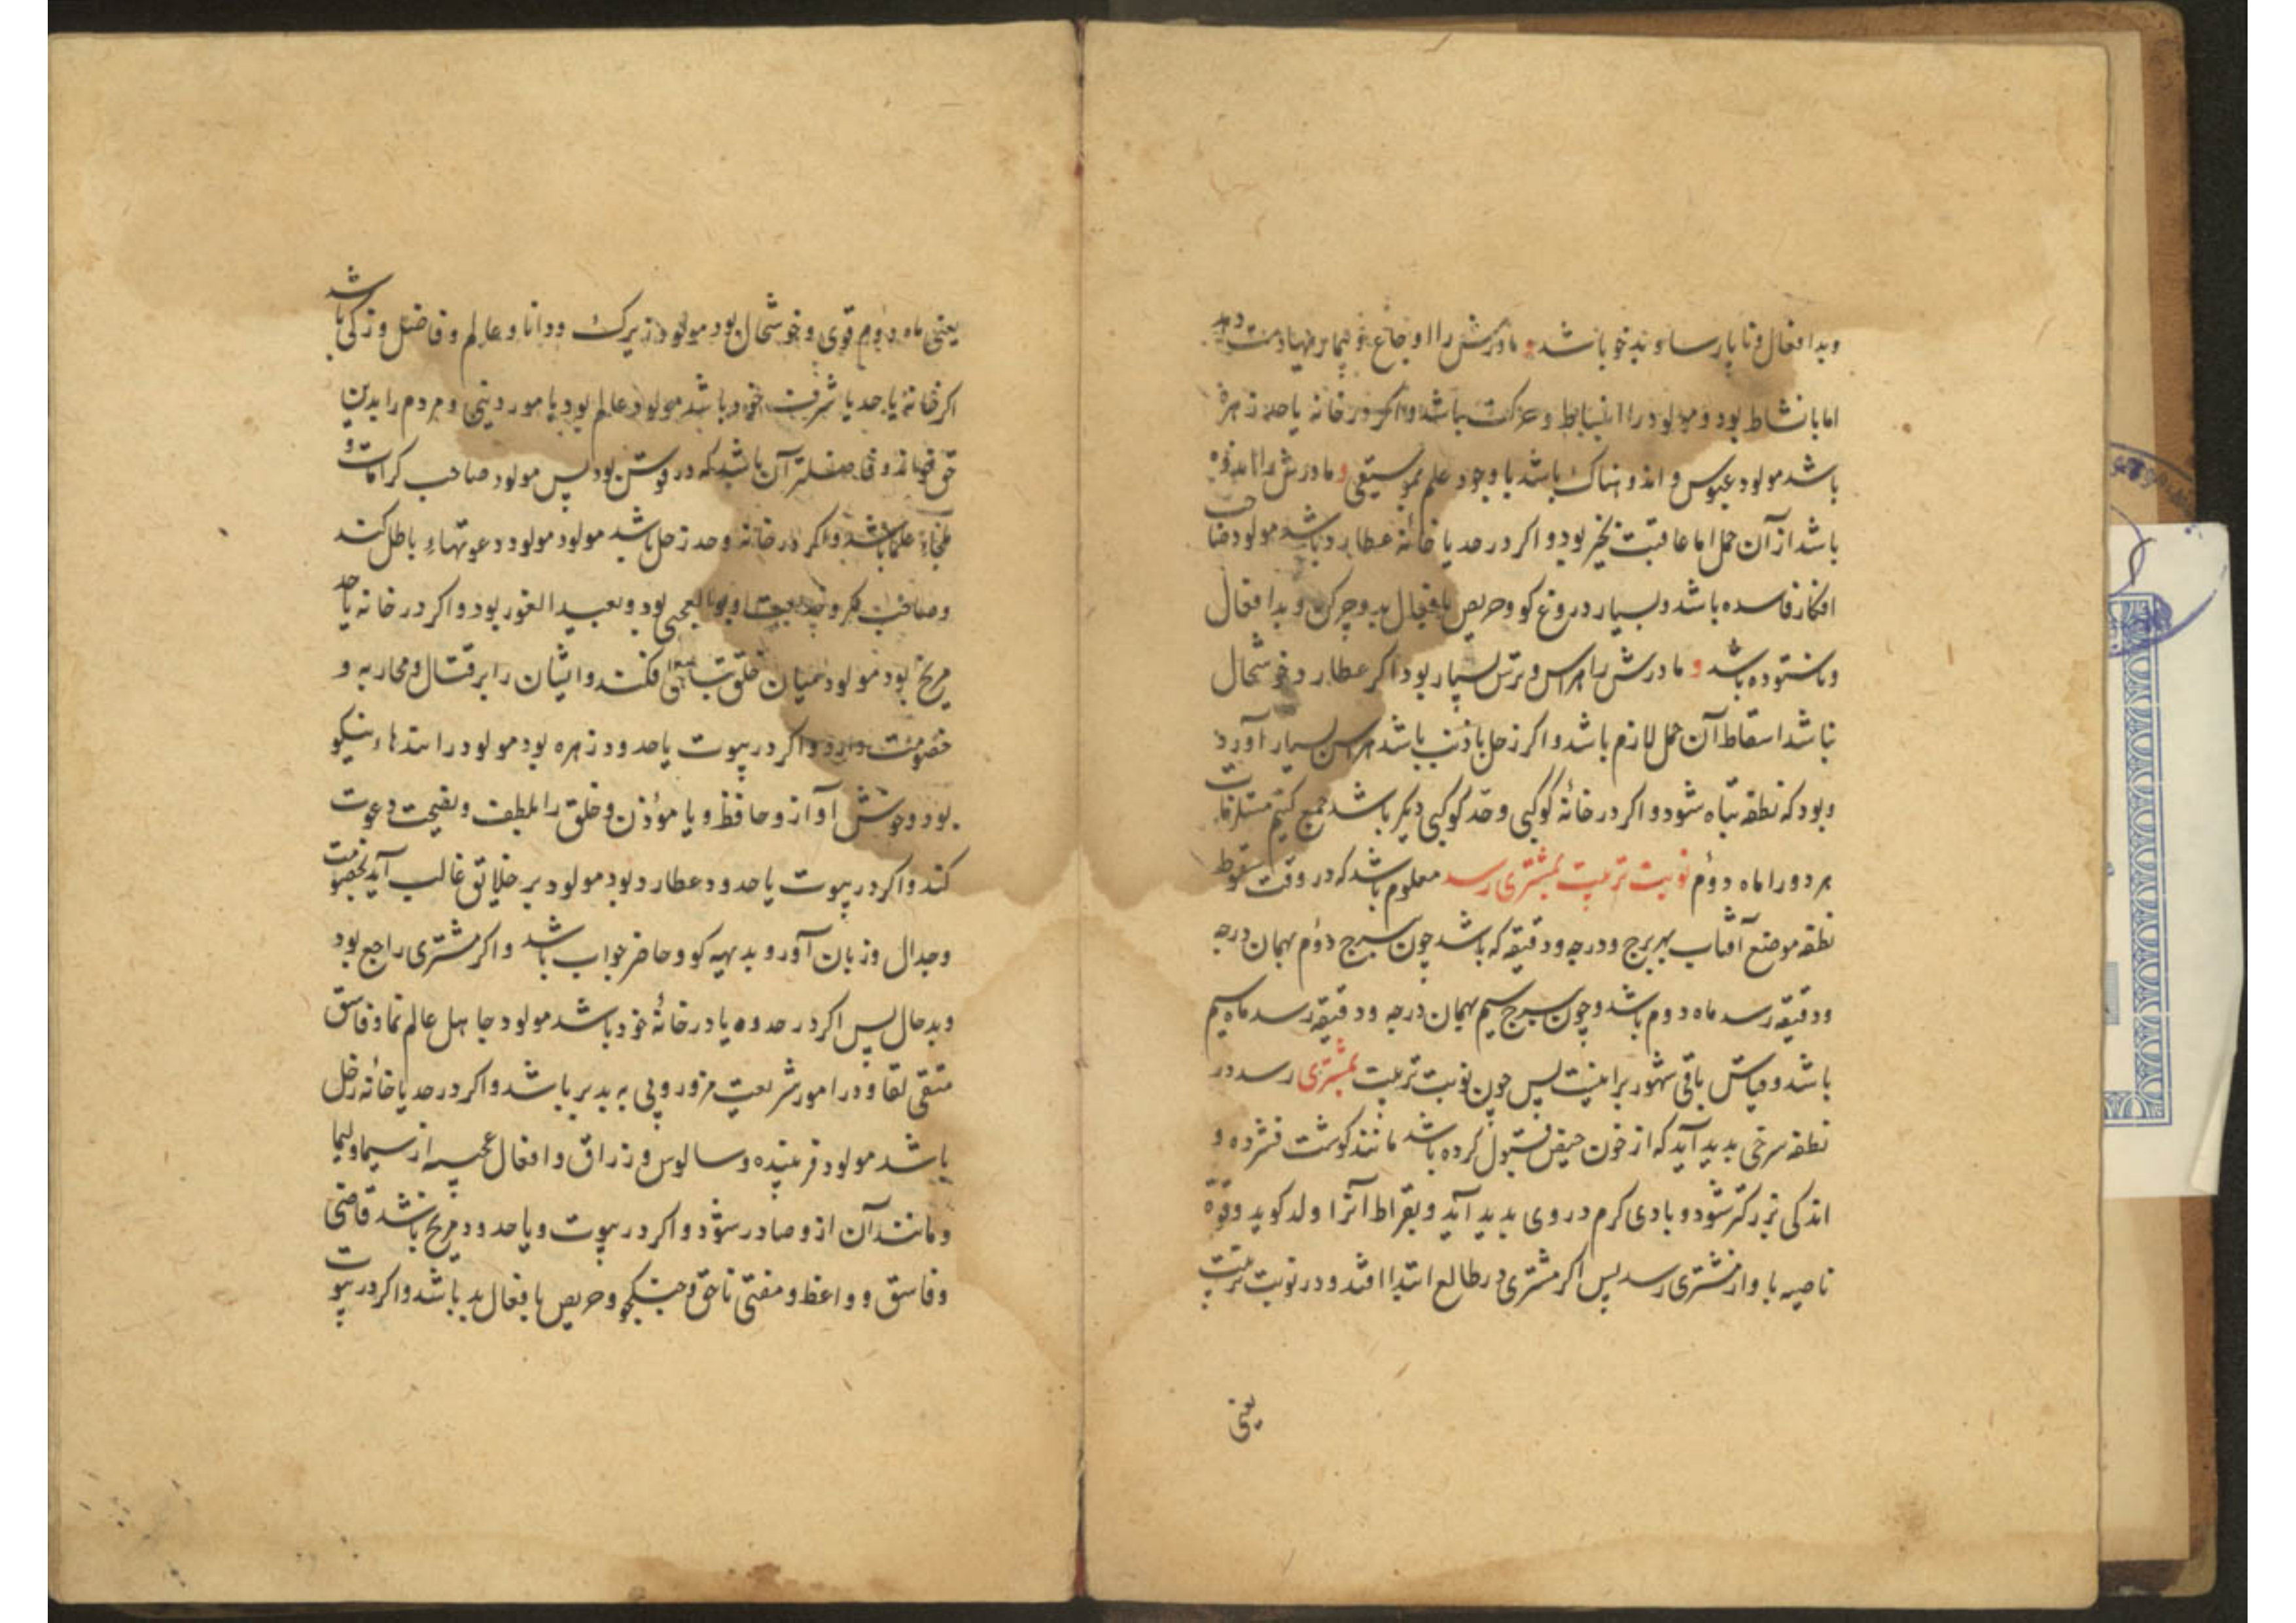 وبد افعال و ناپارسا و بدخو باشد و مادرش را اوجاع
اما با نشاط بود و مولود را انبساط و حرکت باشد و اگر در خانه یا حد زهره
باشد مولود عبوس و اندوهناک باشد با وجود علم موسیقی و مادرش را
باشد از آن حمل اما عاقبت بخیر بود و اگر در حد یا خانهٔ عطارد باشد مولود صاحب
افکار فاسده باشد و بسیار دروغ کو و حریص بافعال بد و چرکن و بد افعال
و ناستوده باشد و مادرش را هراس و ترس بسیار بود اگر عطارد خوشحال
نباشد اسقاط آن حمل لازم باشد و اکر زحل با ذنب باشد هراس بسیار آورد
و بود که نطفه تباه شود و اکر در خانهٔ کوکبی و حد کوکبی دیکر باشد جمع کنیم
هر دو را ماه دوم نوبت تربیت بمشتری رسد معلوم باشد که در وقت سقوط
نطفه موضع آفتاب بهر برج و درجه و دقیقه که باشد چون ببرج دوم بهمان درجه
و دقیقه رسد ماه دوم باشد و چون ببرج سیم بهمان درجه و دقیقه رسد ماه سیم
باشد و قیاس باقی شهور براینست پس چون نوبت تربیت بمشتری رسد در
نطفه سرخی پدید آید که از خون حیض قبول کرده باشد مانند کوشت فشرده و
اندکی بزرکتر شود و بادی کرم در وی پدید آید و بقراط آنرا ولد کوید و قوة
ناصیه باو از مشتری رسد پس اکر مشتری در طالع ابتدا افتد و در نوبت تربیت
یعنی
یعنی ماه دوم قوی و خوشحال بود مولود زیرک و دانا و عالم و فاضل و زکی باشد
اکر خانه یا حد یا شرف خود باشد مولود عالم بود بامور دینی و مردم را بدین
حق خواند و فاضلتر آن باشد که در قوس بود پس مولود صاحب کرامات و
علما باشد و اکر در خانه و حد زحل باشد مولود مولود دعوتهاء باطل کند
و صاحب مکر و بود و بعید الغور بود و اکر در خانه یا حد
مریخ بود مولود میان خلق افکند و ایشان را بر قتال و محاربه و
خصومت دارد و اکر در بیوت یا حدود زهره بود مولود را نیکو
بود و خوش آواز و حافظ و یا مؤذن و خلق را بلطف و نصیحت دعوت
کند و اکر در بیوت یا حدود عطارد بود مولود بر خلایق غالب آید بخصومت
و جدال و زبان آور و بدیهه کو و حاضر جواب باشد و اکر مشتری راجع بود
و بدحال پس اکر در حدود یا در خانهٔ خود باشد مولود جاهل عالم نما و فاسق
متقی لقا و در امور شریعت مزور و پی به بد بر باشد و اکر در حد یا خانه زحل
باشد مولود فریبنده و سالوس و زراق و افعال عجیبه از سیما و لیمیا
و مانند آن ازو صادر شود و اکر در بیوت و یا حدود مریخ باشد قاضی
و فاسق و واعظ و مفتی ناحق و جنکجو و حریص بافعال بد باشد و اکر در بیوت